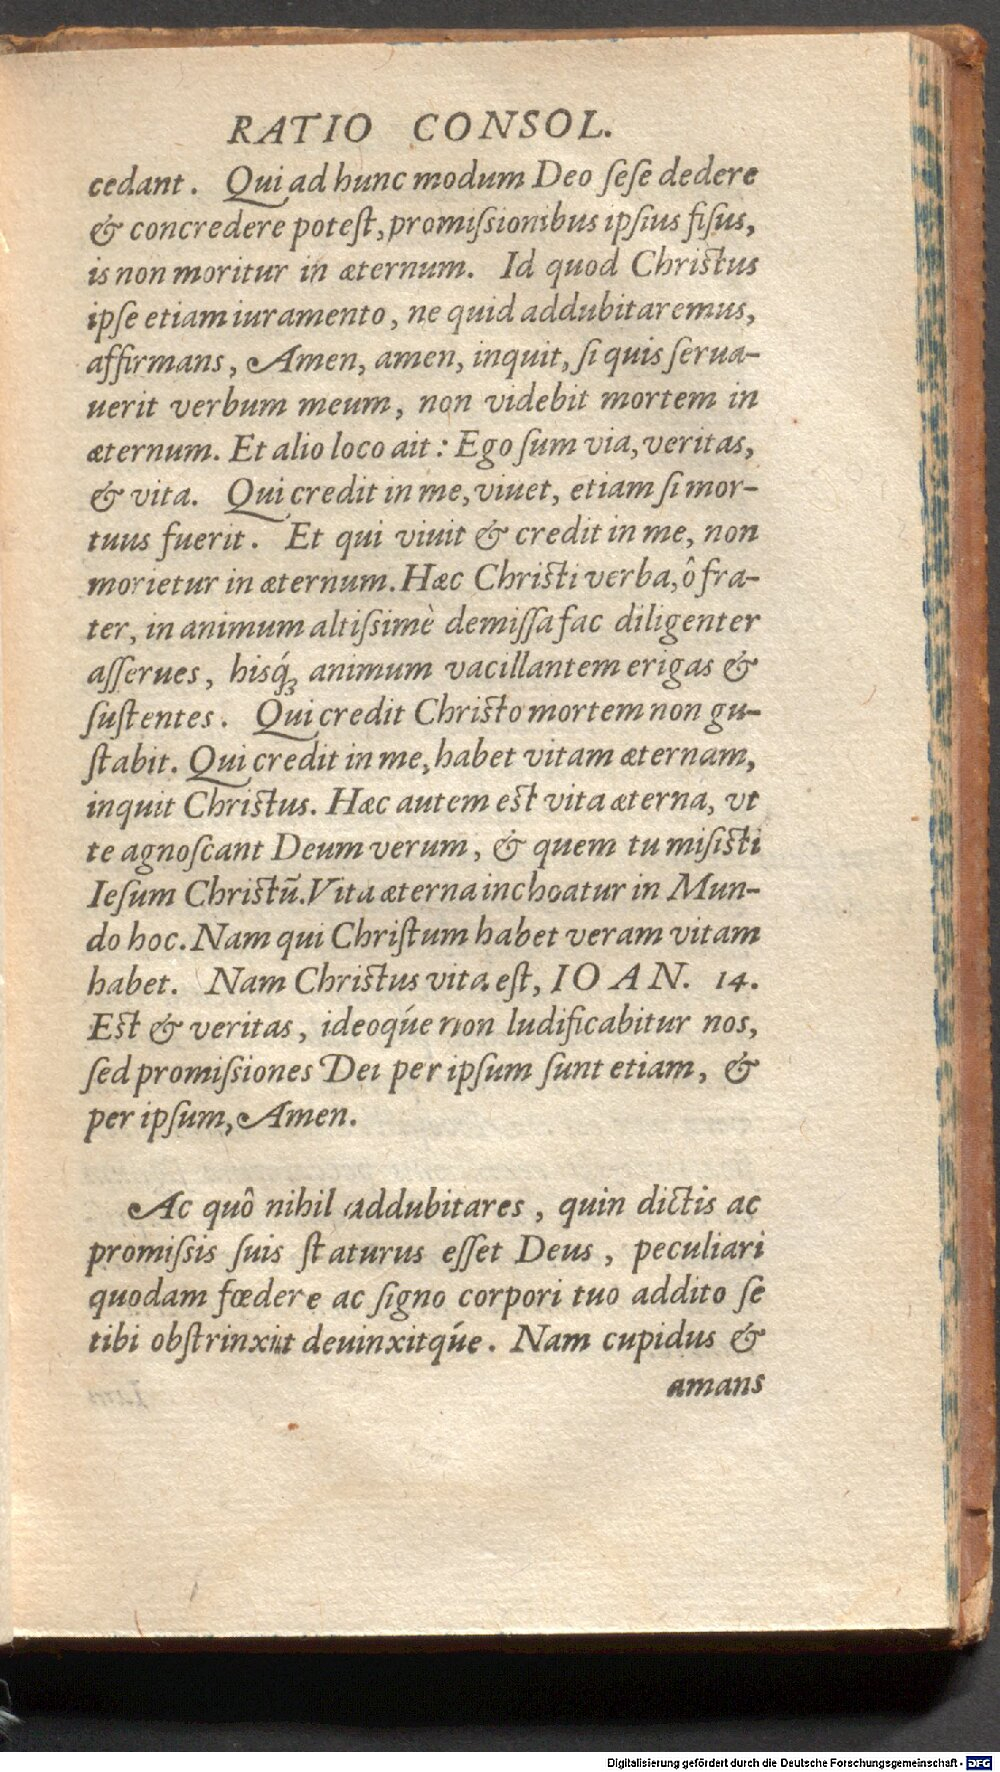 RATIO CONSOL.
cedant. Qui ad hunc modum Deo ſeſe dedere
& concredere poteſt, promiſsionibus ipſius fiſus,
is non moritur in æternum. Id quod Chriſtus
ipſe etiam iuramento, ne quid addubitaremus,
affirmans, Amen, amen, inquit, ſi quis ſerua-
uerit verbum meum, non videbit mortem in
æternum. Et alio loco ait: Ego ſum via, veritas,
& vita. Qui credit in me, viuet, etiam ſi mor-
tuus fuerit. Et qui viuit & credit in me, non
morietur in æternum. Hæc Chriſti verba, ô fra-
ter, in animum altiſsimè demiſſa fac diligenter
aſſerues, hisq́ꝫ animum vacillantem erigas &
ſuſtentes. Qui credit Chriſto mortem non gu-
ſtabit. Qui credit in me, habet vitam æternam,
inquit Chriſtus. Hæc autem eſt vita æterna, vt
te agnoſcant Deum verum, & quem tu miſiſti
Ieſum Chriſtū. Vita æterna inchoatur in Mun-
do hoc. Nam qui Chriſtum habet veram vitam
habet. Nam Chriſtus vita eſt, IOAN. 14.
Eſt & veritas, ideoq́ue non ludificabitur nos,
ſed promiſsiones Dei per ipſum ſunt etiam, &
per ipſum, Amen.
Ac quô nihil addubitares, quin dictis ac
promiſsis ſuis ſtaturus eſſet Deus, peculiari
quodam fœdere ac ſigno corpori tuo addito ſe
tibi obſtrinxit deuinxitq́ue. Nam cupidus &
amans
Digitalisierung gefördert durch die Deutsche Forschungsgemeinschaft - DFG